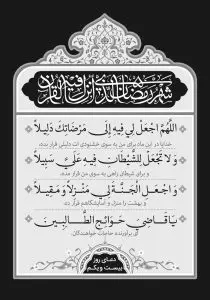 شهر رمضان الذی انزل فیه القرآن
اللَّهُمَّ اجْعَلْ لِي فِيهِ إِلَى مَرْضَاتِكَ دَلِيلاً
خدایا در این ماه برای من به سوی خشنودی ات دلیلی قرار بده،
وَ لاَ تَجْعَلْ لِلشَّيْطَانِ فِيهِ عَلَيَّ سَبِيلاً
و برای شیطان راهی به سوی من قرار مده،
وَ اجْعَلِ الْجَنَّةَ لِي مَنْزِلاً وَ مَقِيلاً
و بهشت را منزل و آسایشگاهم قرار ده،
يَا قَاضِيَ حَوَائِجِ الطَّالِبِينَ
ای برآورنده حاجات خواهندگان.
دعای روز
بیست و یکم